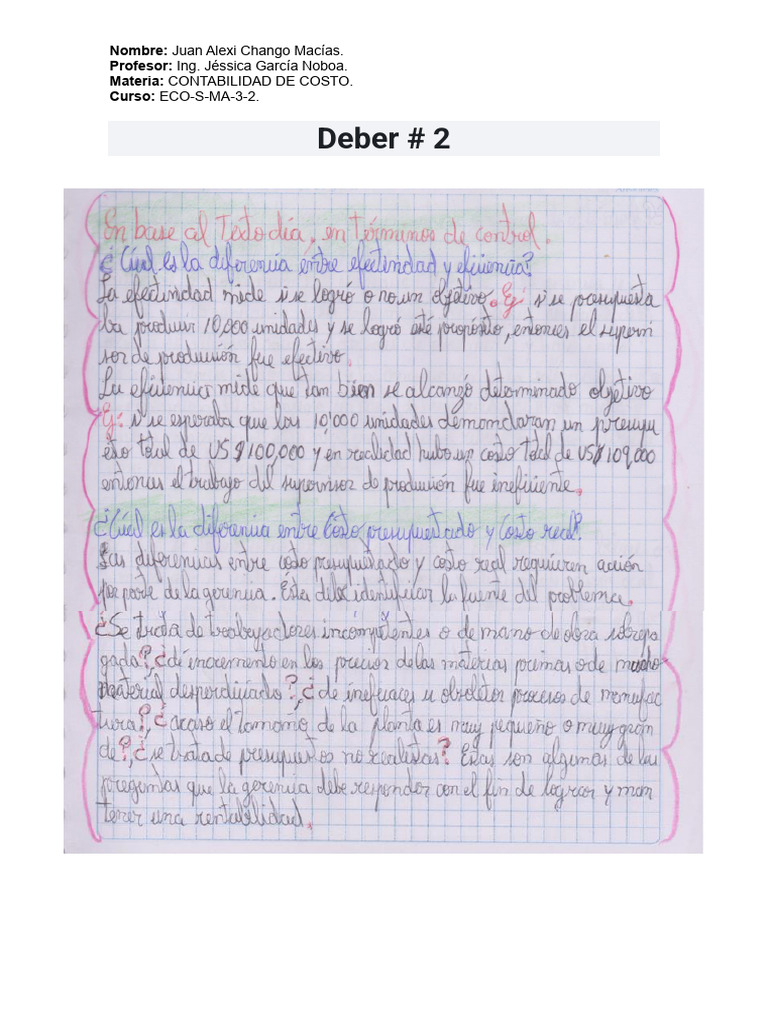 Nombre: Juan Alexi Chango Macías.
Profesor: Ing. Jéssica García Noboa.
Materia: CONTABILIDAD DE COSTO.
Curso: ECO-S-MA-3-2.
Deber # 2
En base al Texto día, en términos de control.
¿Cúal es la diferencia entre efectividad y eficiencia?
La efectividad mide si se logró o no un objetivo. Ej: si se presupuesta
ba producir 10,000 unidades y se logró esté propósito, entonces el supervi
sor de producción fue efectivo.
La eficiencia mide que tan bien se alcanzó determinado objetivo
Ej: si se esperaba que las 10'000 unidades demandaran un presupu
esto total de US $100,000 y en realidad hubo un costo total de US$ 109,000
entonces el trabajo del supervisor de producción fue ineficiente.
¿Cúal es la diferencia entre Costo presupuestado y Costo real?
Las diferencias entre costo presupuestado y costo real requieren acción
por parte de la gerencia. Ésta debe identificar la fuente del problema.
¿Se trata de trabajadores incompetentes o de mano de obra sobrepa
gada?, ¿de incremento en los precios de las materias primas o de mucho
material desperdiciado?, ¿de ineficaces u obsoletos procesos de manufac
tura?, ¿acaso el tamaño de la planta es muy pequeño o muy gran
de?, ¿se trata de presupuestos no realistas? Estas son algunas de las
preguntas que la gerencia debe responder con el fin de lograr y man
tener una rentabilidad.